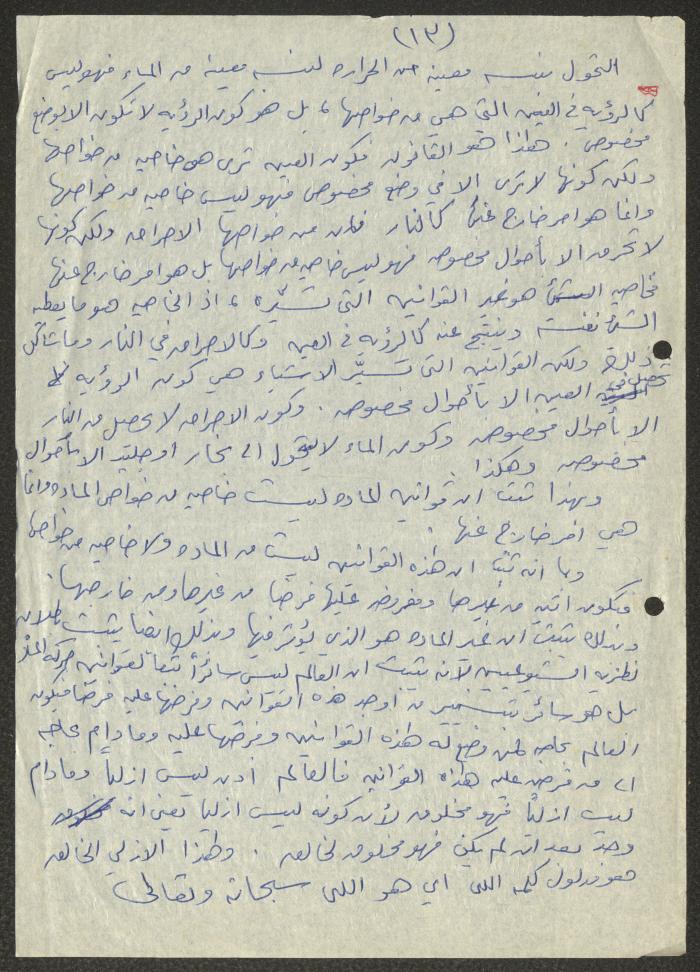 (١٣)
التحول بنسبه معينة من الحراره لنسبه معينة من الماء فهو ليس
كالرؤيه في العين التي هي من خواصها، بل هو كون الرؤيه لا تكون الا بوضع
مخصوص. هذا هو القانون فكون العين ترى هو خاصيه من خواصها
ولكن كونها لا ترى الا في وضع مخصوص فهو ليس خاصيه من خواصها
وانما هو امر خارج عنها كالنار فان من خواصها الاحراق ولكن كونها
لا تحرق الا بأحوال مخصوصه فهو ليس خاصيه من خواصها بل هو امر خارج عنها
فخاصيه الشئ هو غير القوانين التي تسيّره، اذ الخاصيه هو ما يعطيه
الشئ نفسه وينتج عنه كالرؤيه في العين وكالاحراق في النار وما شاكل
ذلك ولكن القوانين التي تسيّر الاشياء هي كون الرؤيه لا
تحصل من العين الا بأحوال مخصوصه. وكون الاحراق لا يحصل من النار
الا بأحوال مخصوصه وكون الماء لا يتحول الى بخار او جليد الا بأحوال
مخصوصه وهكذا.
وبهذا ثبت ان قوانين الماده ليست خاصيه من خواص الماده وانما
هي امر خارج عنها.
وبما انه ثبت ان هذه القوانين ليست من الماده ولا خاصيه من خواصها
فتكون اتيه من غيرها ومفروضه عليها فرضا من غيرها ومن خارجها.
وبذلك يثبت ان غير الماده هو الذي يؤثر فيها وبذلك ايضا يثبت بطلان
نظريه الشيوعيين لأنه يثبت ان العالم ليس سائرًا تبعًا لقوانين حركة الماده
بل هو سائر بتسيير من اوجد هذه القوانين وفرضها عليه فرضا فيكون
العالم بحاجه لمن وضع له هذه القوانين وفرضها عليه وما دام بحاجه
الى من فرض عليه هذه القوانين فالعالم اذن ليس ازليًا وما دام
ليس ازليًا فهو مخلوق لأن كونه ليس ازليا يعني انه
وجد بعد ان لم يكن فهو مخلوق لخالق. وهذا الازلي الخالق
هو مدلول كلمه الله اي هو الله سبحانه وتعالى